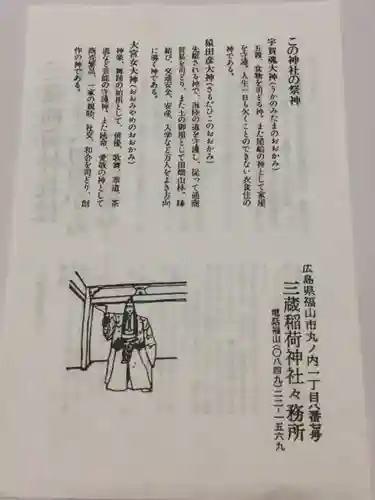 この神社の祭神
宇賀魂大神(うかのみたまのおおかみ)
五穀、食物を司どる神、また稲船の神として家屋
を守護、人生一日も欠くことのできない衣食住の
神である。
猿田彦大神(さるだひこのおおかみ)
先駆される神で、海陸の道を守護し、従って通商
貿易を司どり、また土の御祖として田畑山林、縁
結び、交通安全、安産、入学など万人をよき方向
に導く神である。
大宮女大神(おおみやめのおおかみ)
神楽、舞踊の始祖として、俳優、歌舞、華道、茶
道など芸能の守護神、また延命、愛敬の神として
商売繁昌、一家の親睦、社交、和合を司どり、創
作の神である。
広島県福山市丸ノ内一丁目八番七号
三蔵稲荷神社々務所
電話福山(〇八四九)二二-一五六九